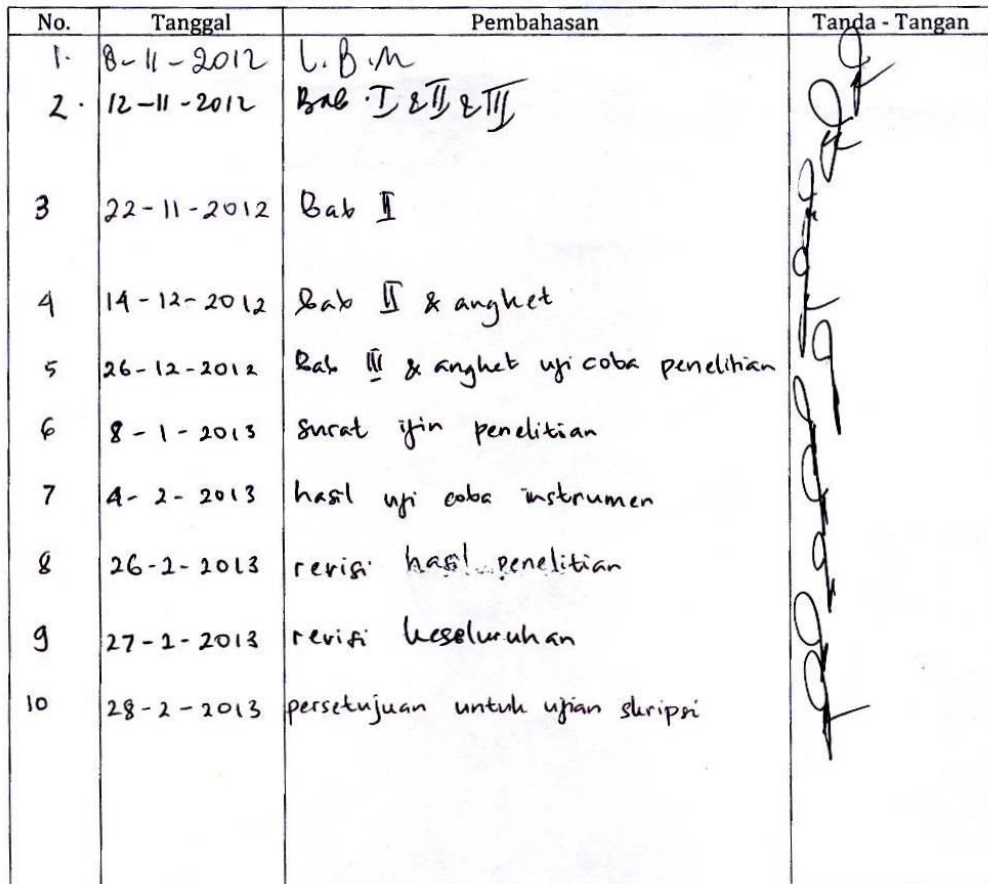 No. Tanggal Pembahasan Tanda - Tangan
1. 8-11-2012 L.B.M
2. 12-11-2012 Bab I & II & III
3 22-11-2012 Bab II
4 14-12-2012 Bab II & angket
5 26-12-2012 Bab III & angket uji coba penelitian
6 8-1-2013 surat ijin penelitian
7 4-2-2013 hasil uji coba instrumen
8 26-2-2013 revisi hasil penelitian
9 27-2-2013 revisi keseluruhan
10 28-2-2013 persetujuan untuk ujian skripsi